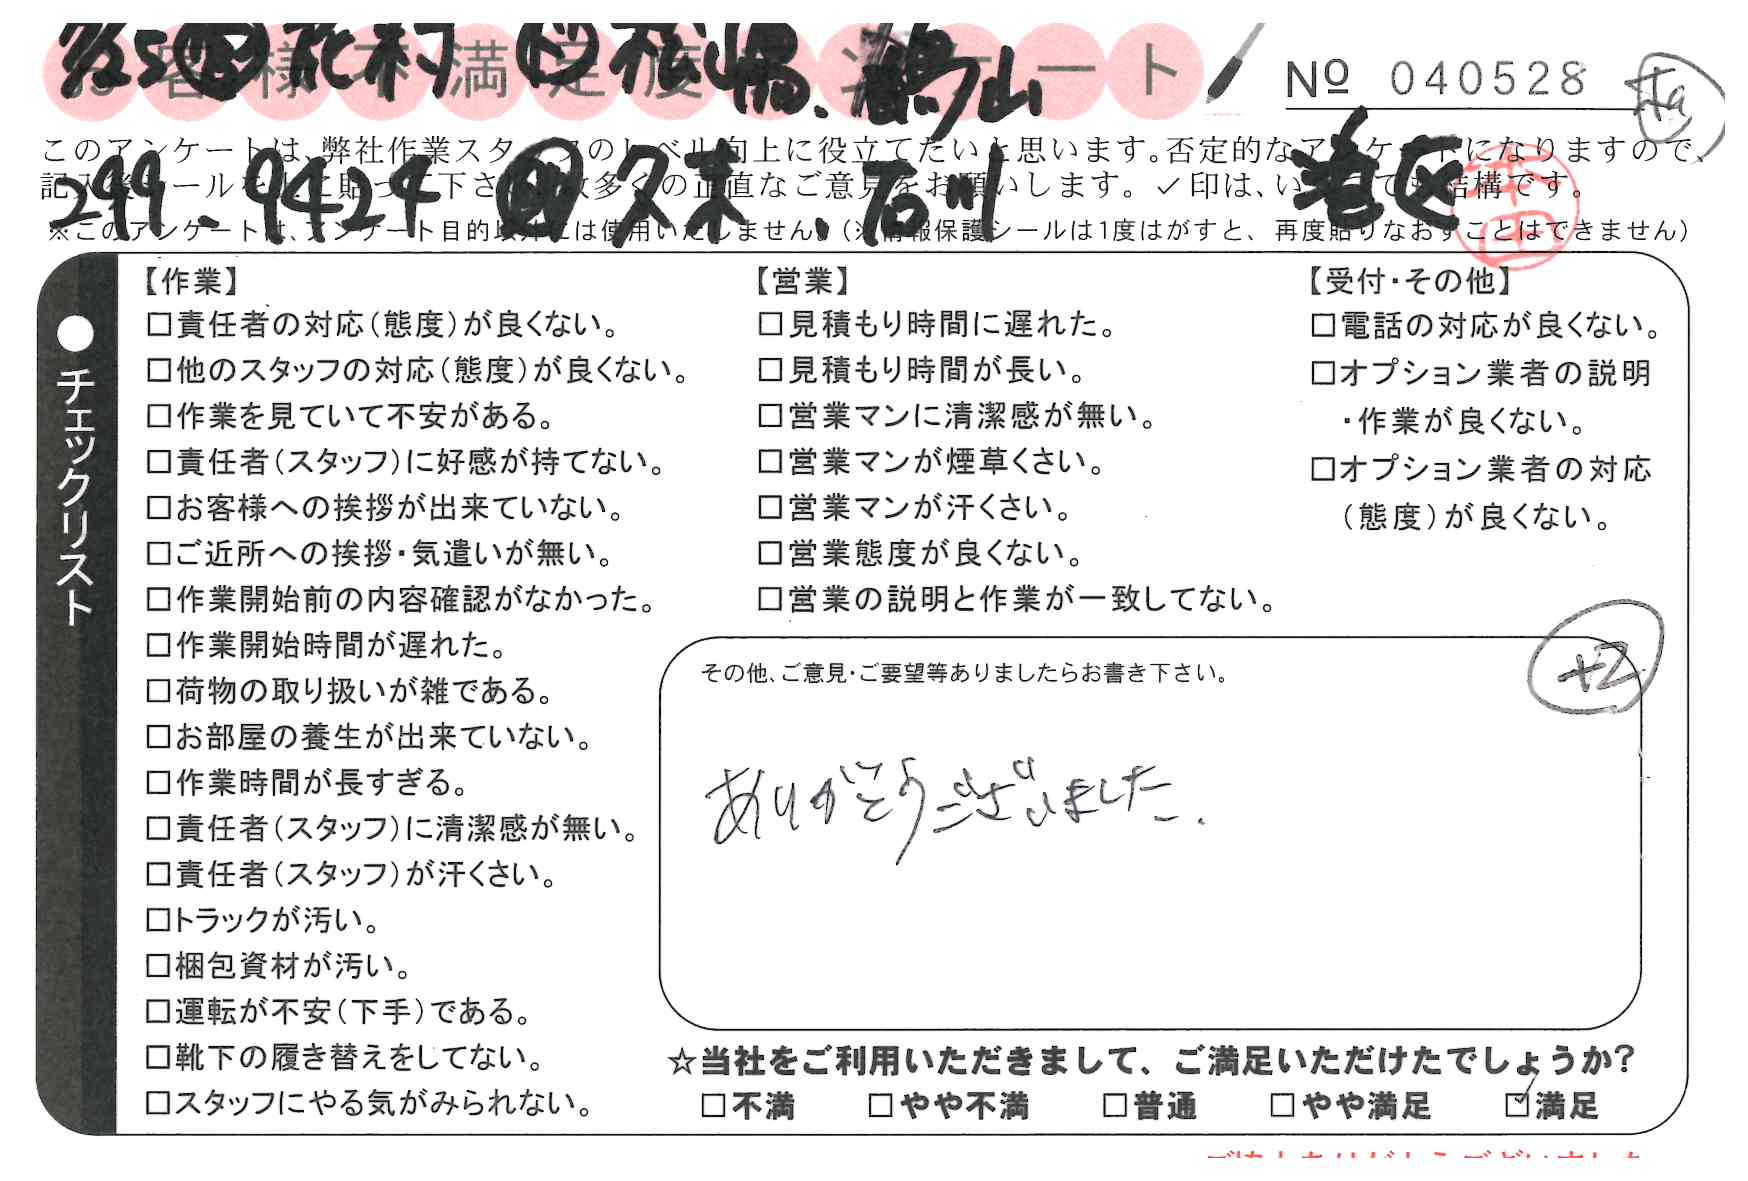 7/25 花村 松嶋、嶋山
お客様不満足度アンケート
№ 040528
このアンケートは、弊社作業スタッフのレベル向上に役立てたいと思います。否定的なアンケートになりますので、
記入後シールを上に貼って下さい。数多くの正直なご意見をお願いします。✓印は、いくつでも結構です。
299-9424 久末、石川 港区
※このアンケートは、アンケート目的以外には使用いたしません。(※情報保護シールは1度はがすと、再度貼りなおすことはできません)
●チェックリスト
【作業】
□責任者の対応(態度)が良くない。
□他のスタッフの対応(態度)が良くない。
□作業を見ていて不安がある。
□責任者(スタッフ)に好感が持てない。
□お客様への挨拶が出来ていない。
□ご近所への挨拶・気遣いが無い。
□作業開始前の内容確認がなかった。
□作業開始時間が遅れた。
□荷物の取り扱いが雑である。
□お部屋の養生が出来ていない。
□作業時間が長すぎる。
□責任者(スタッフ)に清潔感が無い。
□責任者(スタッフ)が汗くさい。
□トラックが汚い。
□梱包資材が汚い。
□運転が不安(下手)である。
□靴下の履き替えをしてない。
□スタッフにやる気がみられない。
【営業】
□見積もり時間に遅れた。
□見積もり時間が長い。
□営業マンに清潔感が無い。
□営業マンが煙草くさい。
□営業マンが汗くさい。
□営業態度が良くない。
□営業の説明と作業が一致してない。
【受付・その他】
□電話の対応が良くない。
□オプション業者の説明
・作業が良くない。
□オプション業者の対応
(態度)が良くない。
+2
その他、ご意見・ご要望等ありましたらお書き下さい。
ありがとうございました.
☆当社をご利用いただきまして、ご満足いただけたでしょうか?
□不満 □やや不満 □普通 □やや満足 ☑満足
ご協力ありがとうございました